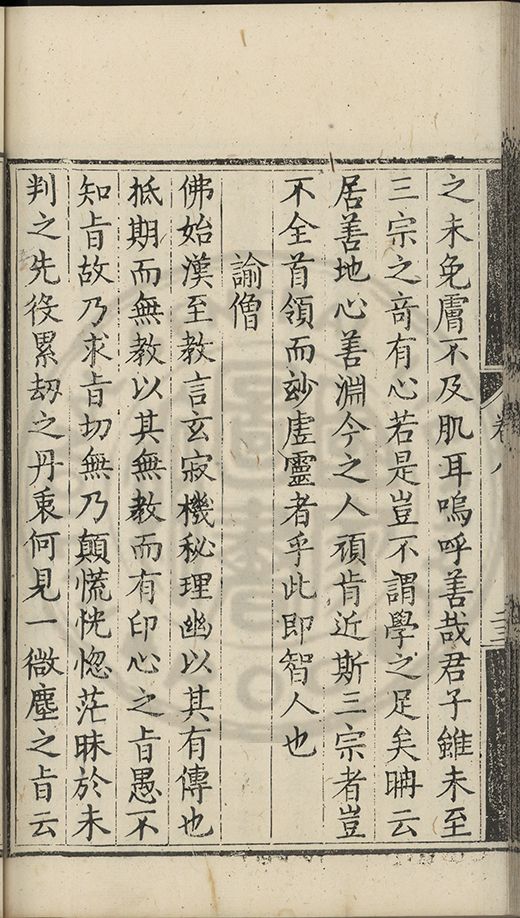 之未免膚不及肌耳嗚呼善哉君子雖未至
三宗之竒有心若是豈不謂學之足矣聃云
居善地心善淵今之人頑肯近斯三宗者豈
不全首領而玅虛靈者乎此即智人也
諭僧
佛始漢至教言玄寂機秘理幽以其有傳也
抵期而無教以其無教而有印心之旨愚不
知旨故乃求旨切無乃顛慌恍惚茫昧於未
判之先役累刼之丹衷何見一微塵之旨云
卷八